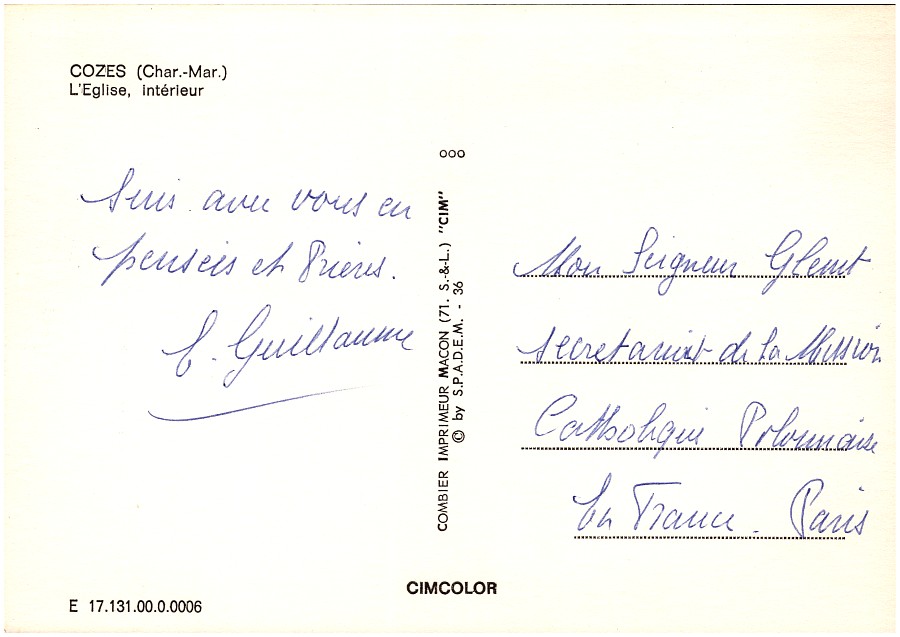 COZES (Char.-Mar.)
L'Eglise, intérieur
Suis avec vous en
pensées et Prières.
Guillaume
ooo
COMBIER IMPRIMEUR MACON (71. S.-&-L.) "CIM"
© by S.P.A.D.E.M. - 36
Mon Seigneur Glemt
Secretariat de la Mission
Catholique Polonaise
En France. Paris
CIMCOLOR
E 17.131.00.0.0006